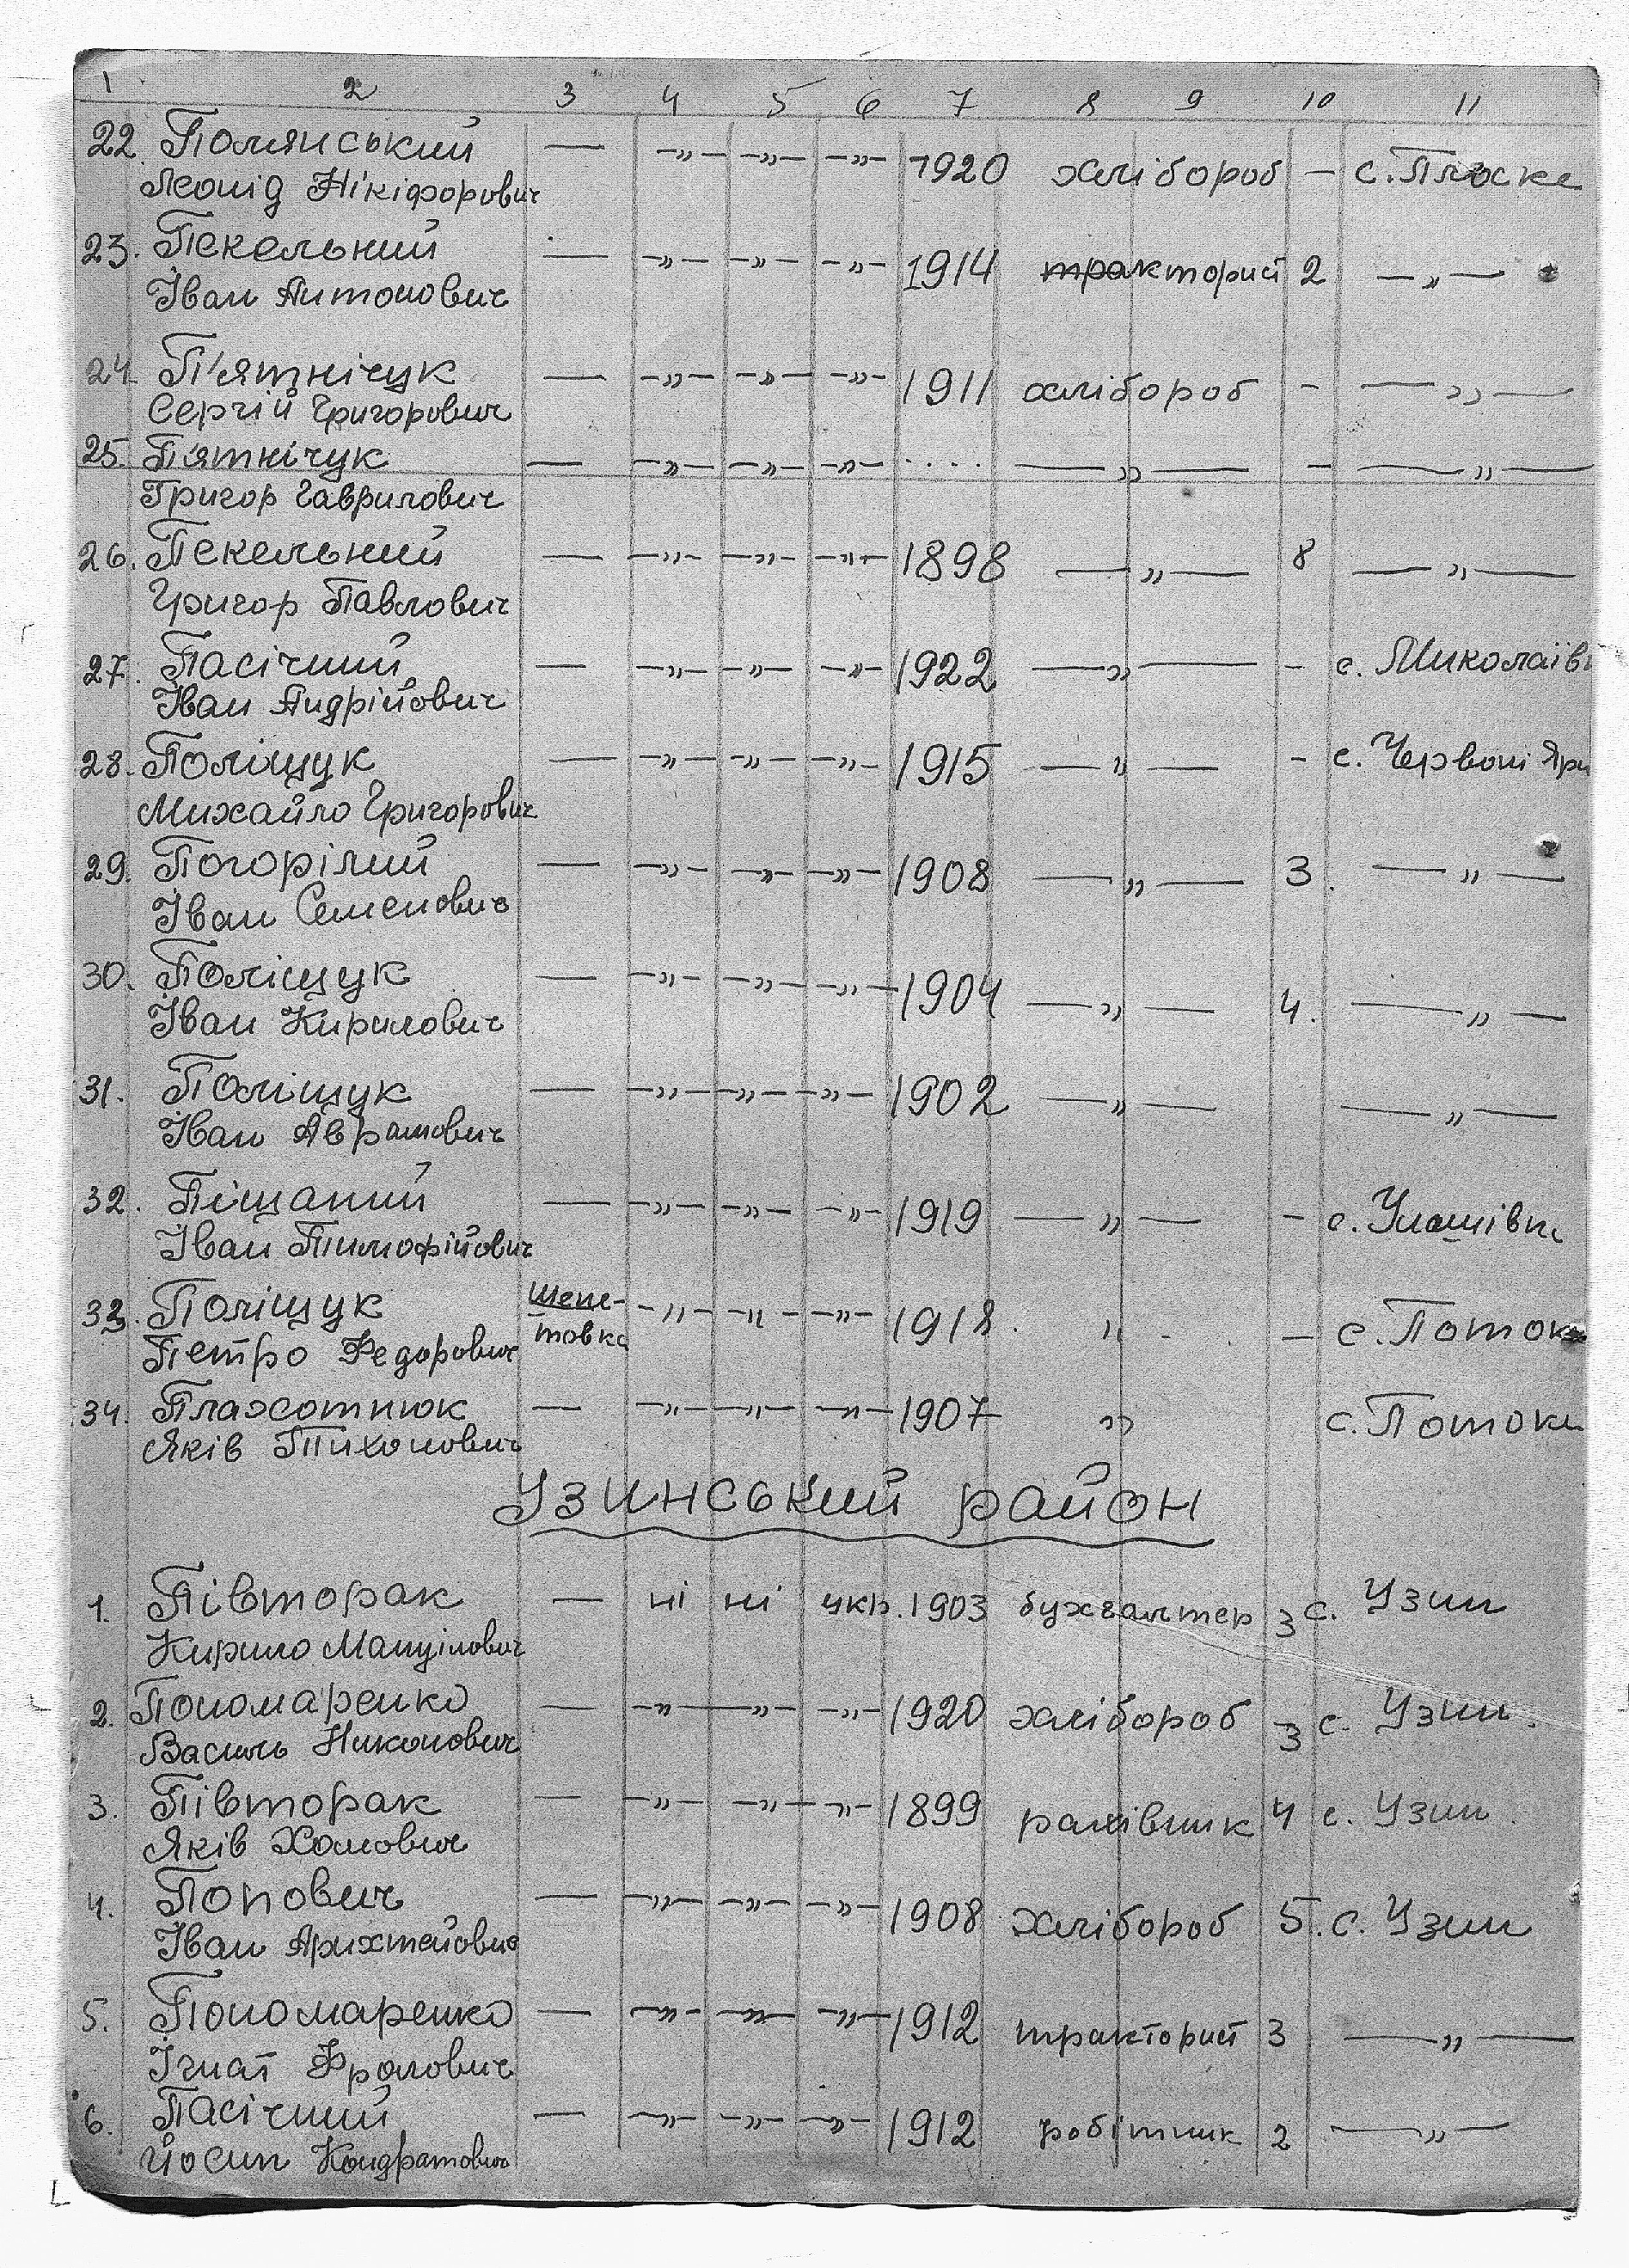 1 2 3 4 5 6 7 8 9 10 11
22. Полянський — —"— —"— —"— 1920 хлібороб — с. Плоске
Леонід Нікіфорович
23. Пекельний — —"— —"— —"— 1914 тракторист 2 —"—
Іван Антонович
24. П'ятнічук — —"— —"— —"— 1911 хлібороб - —"—
Сергій Григорович
25. П'ятнічук — —"— —"— —"— .... —"— - —"—
Григор Гаврилович
26. Пекельний — —"— —"— —"— 1898 —"— 8 —"—
Григор Павлович
27. Пасічний — —"— —"— —"— 1922 —"— - с. Миколаїв
Іван Андрійович
28. Поліщук — —"— —"— —"— 1915 —"— - с. Червоні Яри
Михайло Григорович
29. Погорілий — —"— —"— —"— 1908 —"— 3. —"—
Іван Семенович
30. Поліщук — —"— —"— —"— 1904 —"— 4. —"—
Іван Кирилович
31. Поліщук — —"— —"— —"— 1902 —"— —"—
Іван Аврамович
32. Піщаний — —"— —"— —"— 1919 —"— - с. Улашівка
Іван Тимофійович
33. Поліщук Шепе- —"— —"— —"— 1918. " — с. Потоки
Петро Федорович товка
34. Плахотнюк — —"— —"— —"— 1907 " с. Потоки
Яків Тихонович
Узинський район
1. Півторак — ні ні укр. 1903 бухгалтер 3 с. Узин
Кирило Мануілович
2. Пономаренко — —"— —"— —"— 1920 хлібороб 3 с. Узин.
Василь Никонович
3. Півторак — —"— —"— —"— 1899 рахівник 4 с. Узин.
Яків Хомович
4. Попович — —"— —"— —"— 1908 хлібороб 5. с. Узин
Іван Арихтейович
5. Пономаренко — —"— —"— —"— 1912 тракторист 3 —"—
Ігнат Фролович
6. Пасічний — —"— —"— —"— 1912 робітник 2 —"—
Йосип Кондратович